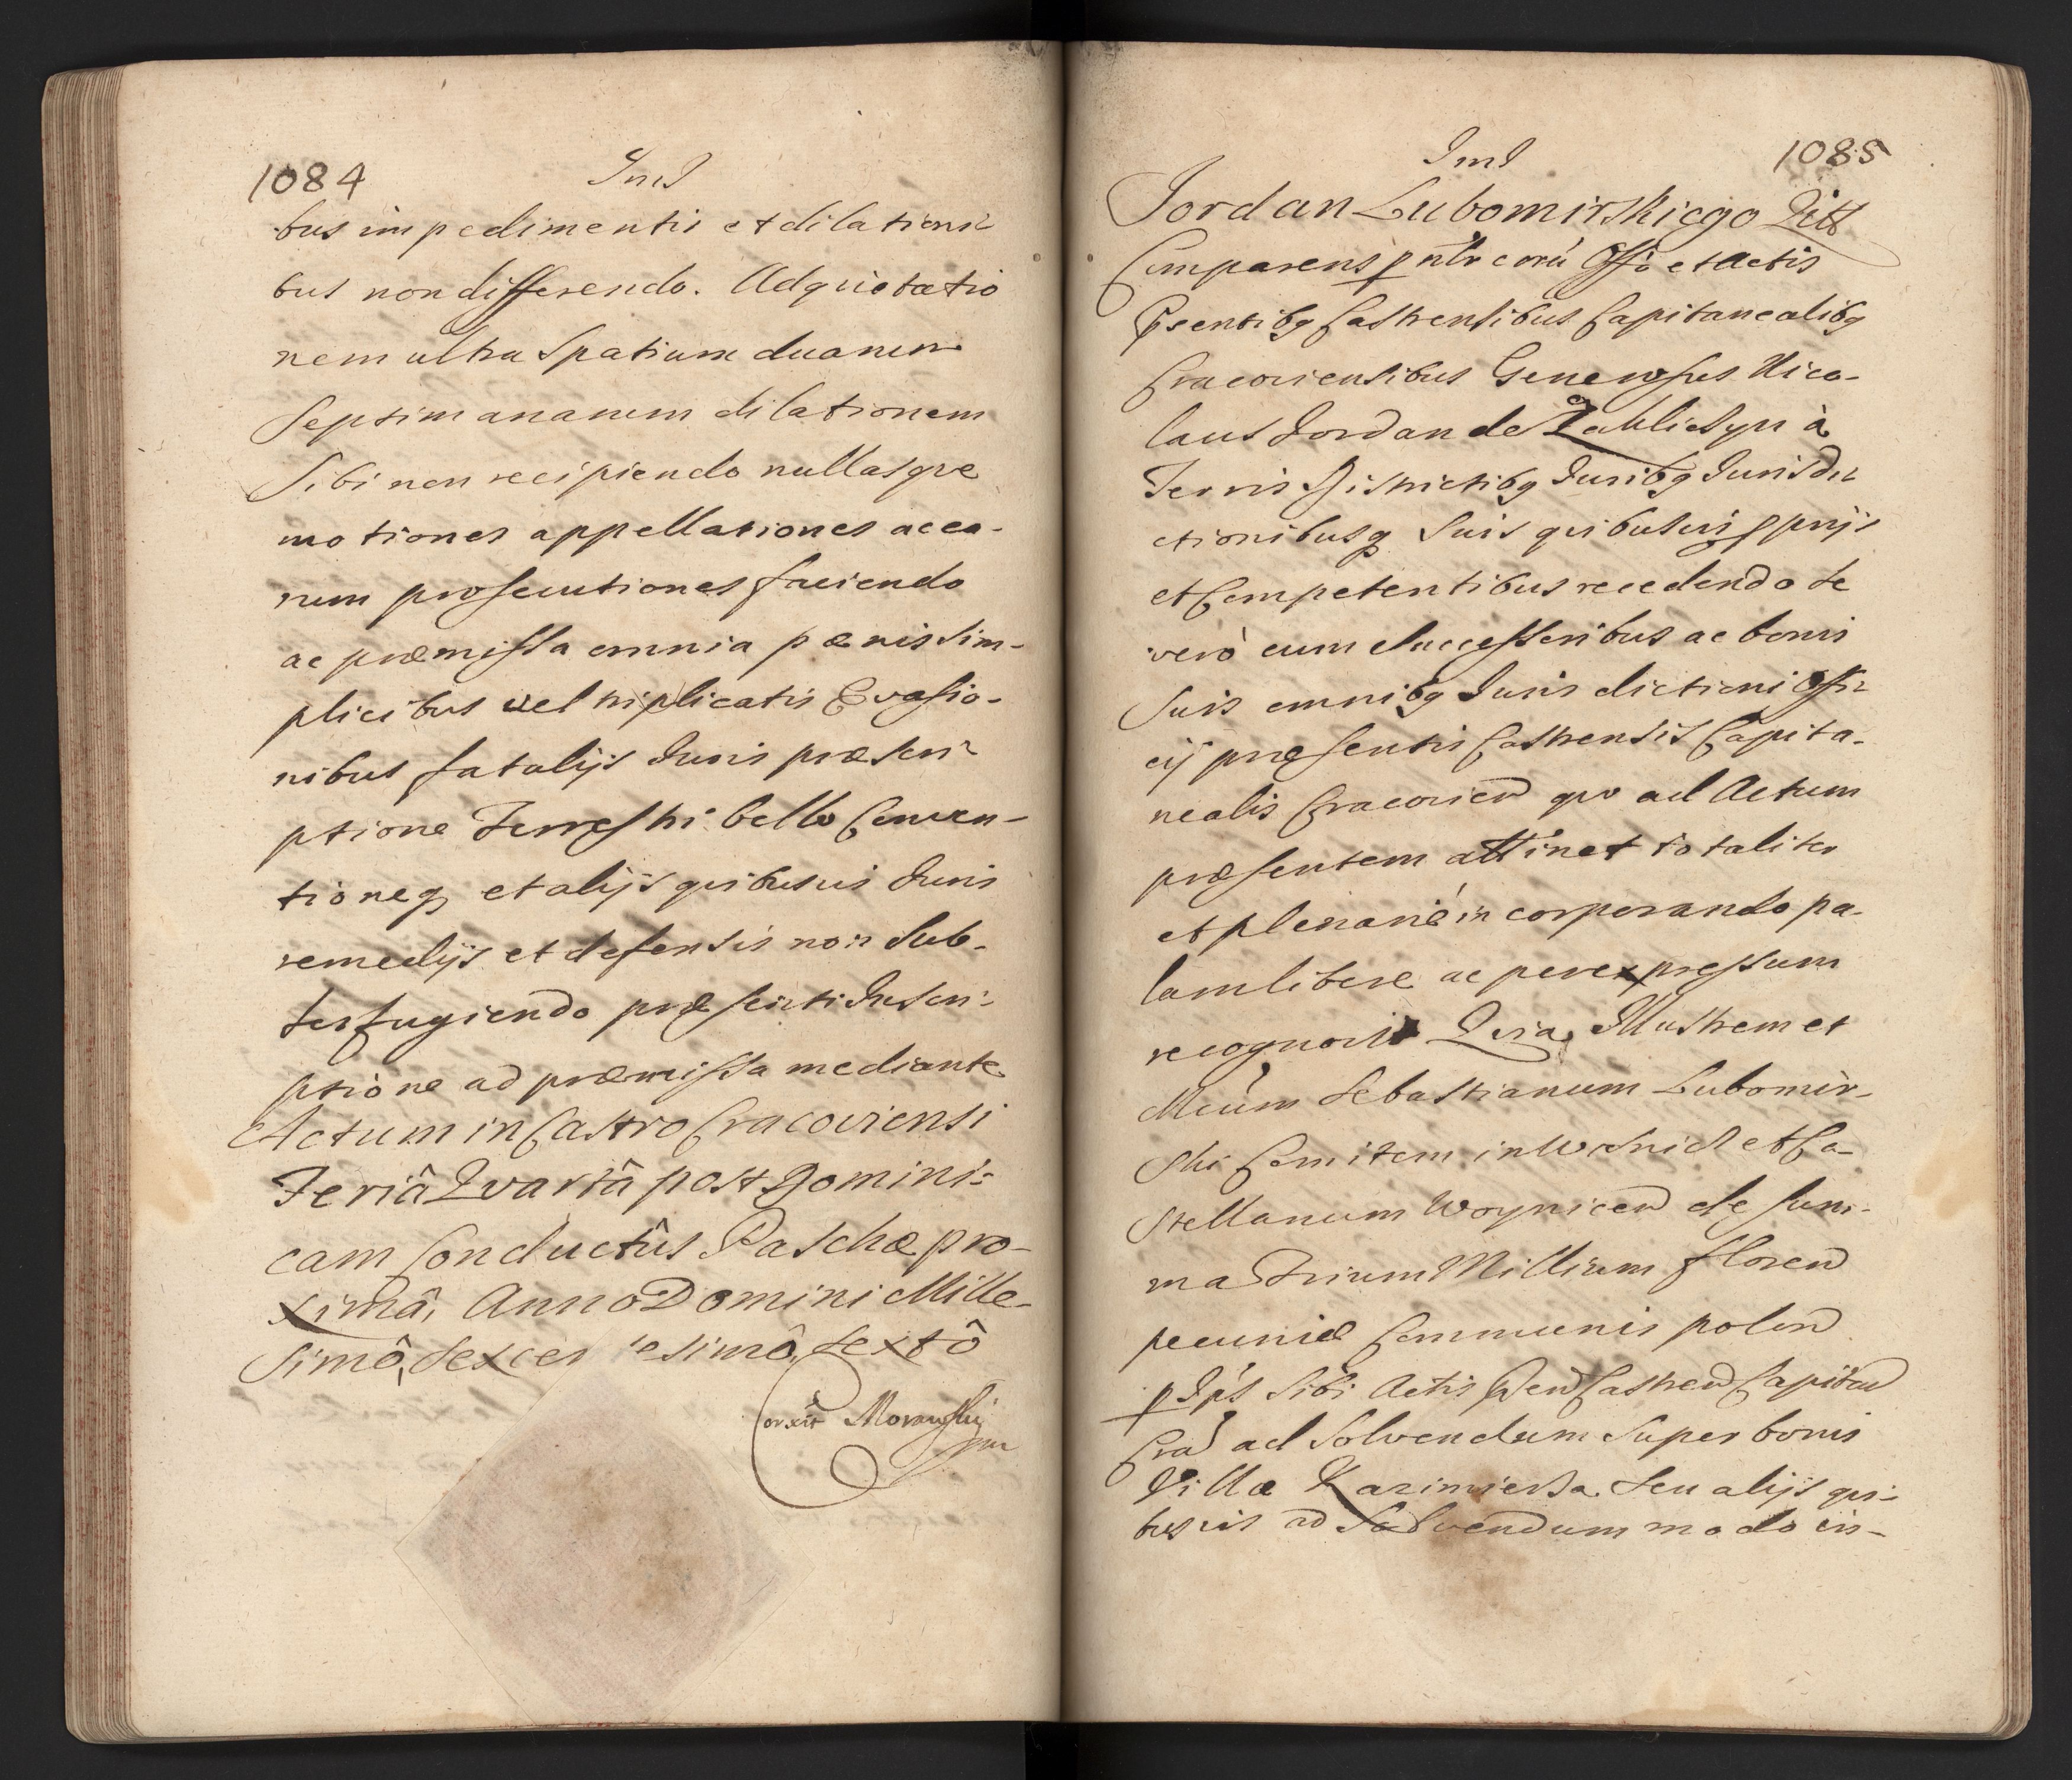 1084
ImJ
bus impedimentis et dilationi-
bus non differendo. Adquietatio
nem ultra spatium duarum
septimanarum dilationem
sibi non recipiendo nullasque
motiones appellationes acea-
rum prosecutiones faciendo
ac præmissa omnia pænis sim-
plicibus vel triplicatis Evasio-
nibus fatalijs Juris præscri-
ptione Terrestri bello Conven-
tioneq3 et alijs quibusvis Juris
remedijs et defensis non sub-
terfugiendo præsenti Inscri-
ptione ad præmissa mediante
Actum in Castro Cracoviensi
Feriâ Quartâ post Domini-
cam Conductûs Paschæ pro-
ximâ, Anno Domini Mille-
simô, Sexcen tesimô, Sextô
Correxit Morawski
mp
ImJ
1085
Jordan Lubomirskiego Quit
Comparens pnlr corā Offo et Actis
Psentibq Castrensibus Capitanealibq
Cracoviensibus Generosus Nico-
laus Jordan de Zakliczyn à
Terris Districtibq Juribq Jurisdi-
ctionibusq suis quibusvis pprijs
et Competentibus recedendo se
verò cum Successoribus ac bonis
suis omnibq Jurisdictioni Offi-
cij præsentis Castrensis Capita-
nealis Cracovien quo ad Actum
præsentem attinet totaliter
et plenariè incorporando pa-
lam libere ac per expressum
recognovit Quia Illustrem et
Mcum Sebastianum Lubomir-
ski Comitem in Wisnicz et Ca-
stellanum Woynicen de sum-
ma Trium Millium floren
pecuniæ Communis polon
p Ips sibi Actis Pen Castren Capitan
Cra ad solvendum super bonis
Villæ Kazimierza seu alijs qui-
busvis ad Solvendum modo in-